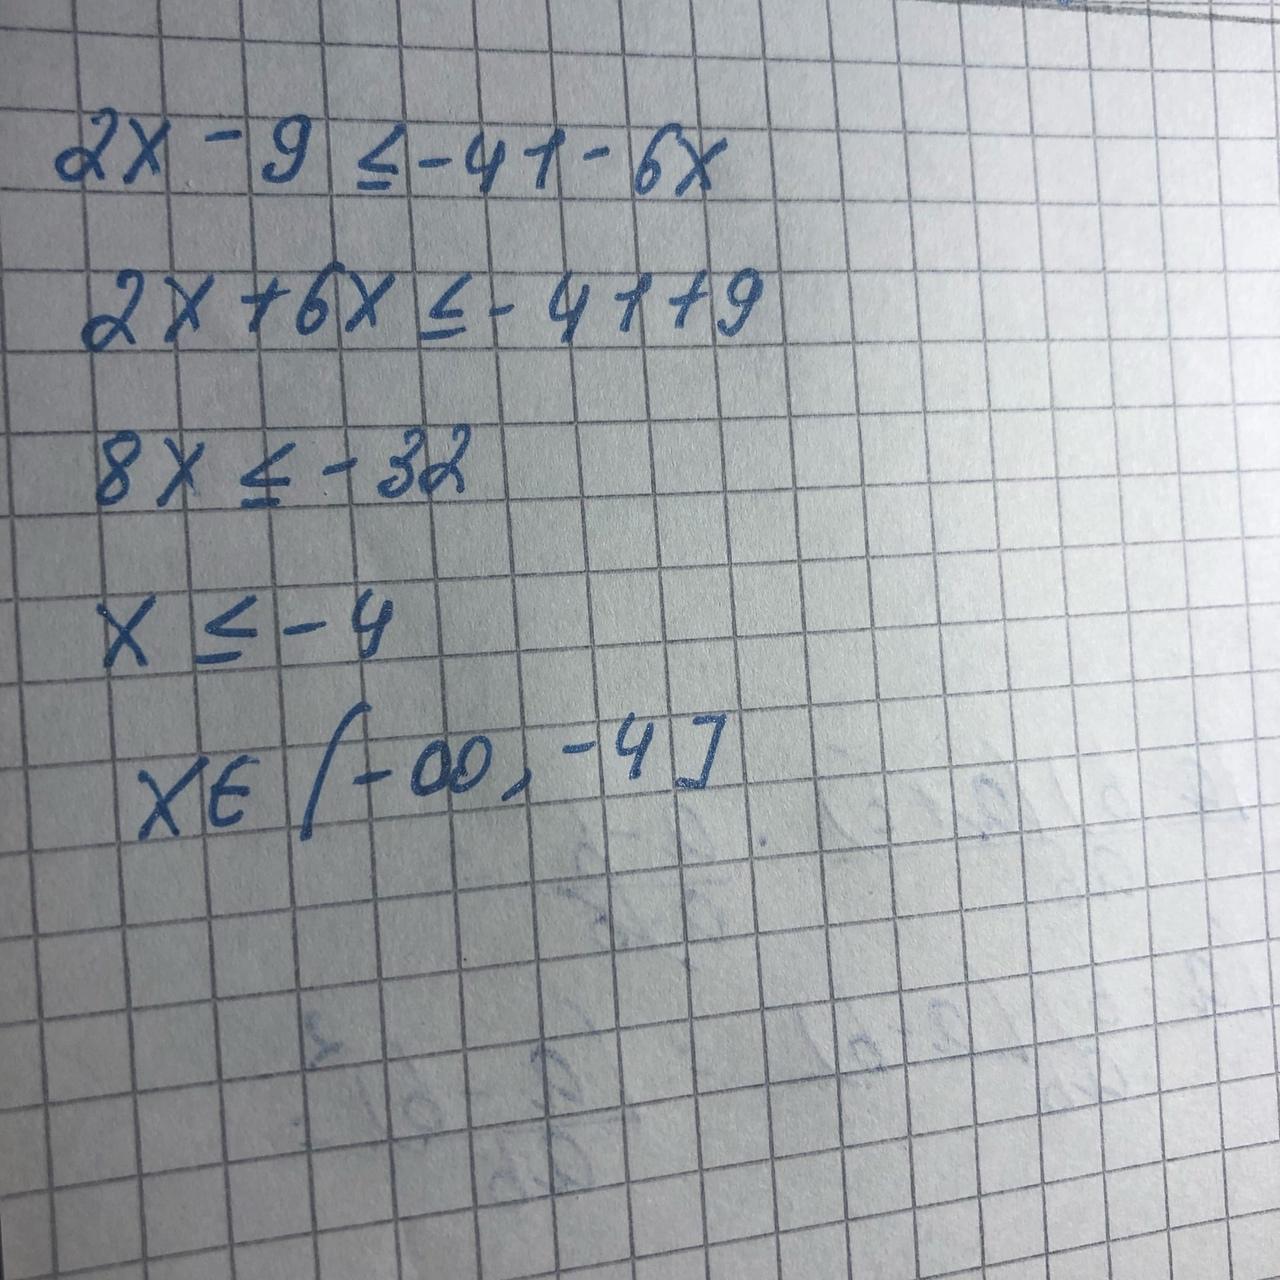 2x - 9 ≤ -41 - 6x
2x + 6x ≤ - 41 + 9
8x ≤ - 32
x ≤ - 4
x ∈ (-∞, -4]